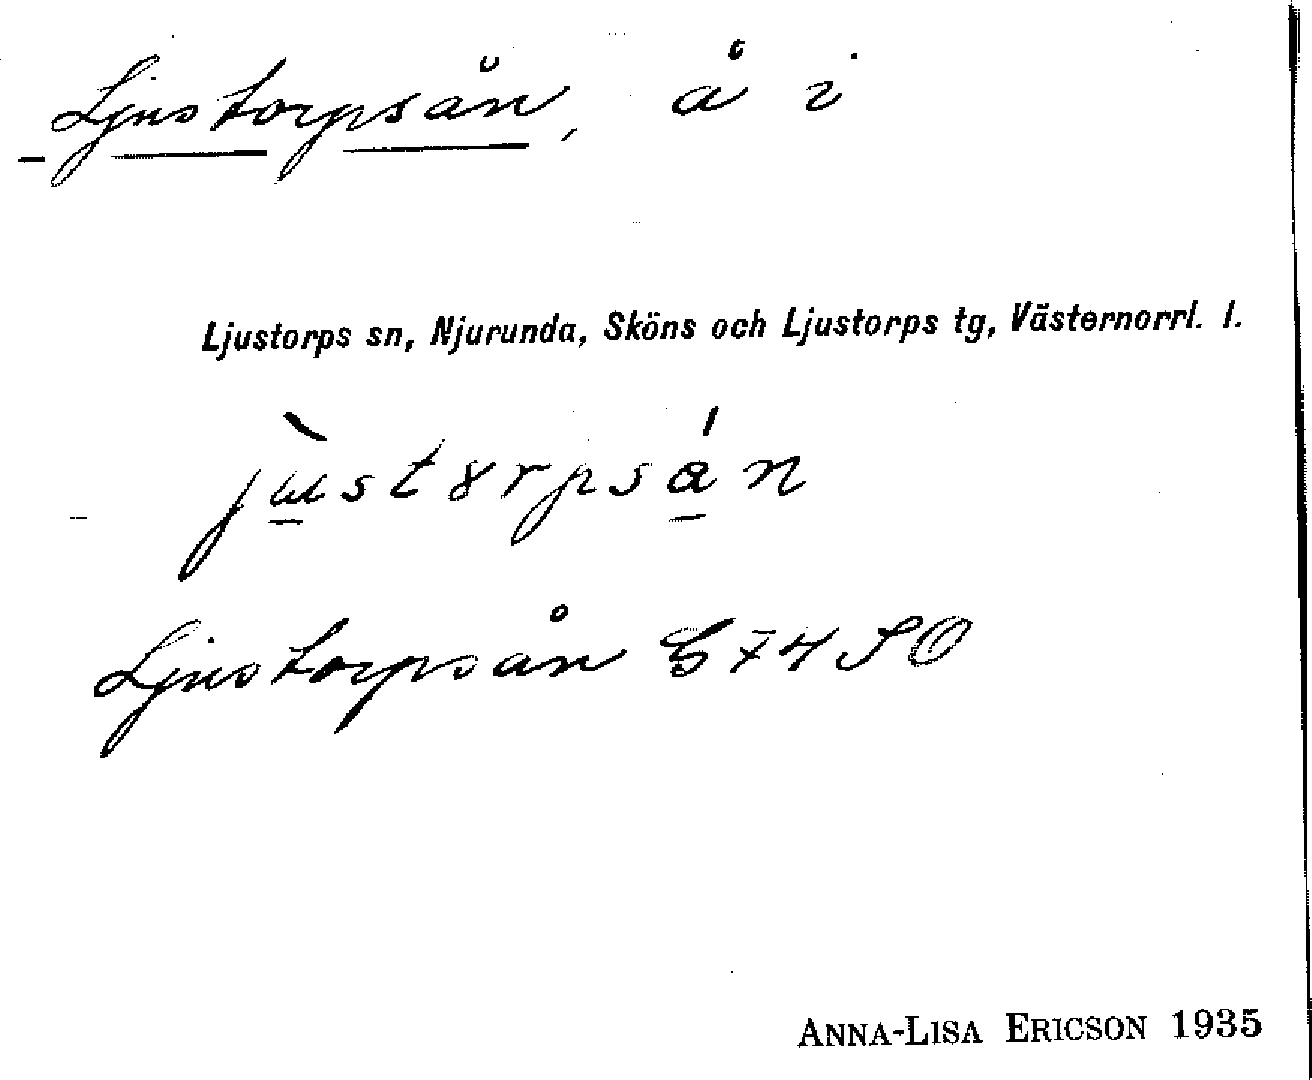 Ljustorpsån, å i
Ljustorps sn, Njurunda, Sköns och Ljustorps tg, Västernorrl. l.
Ljustorpsån G74SO
ANNA-LISA ERICSON 1935